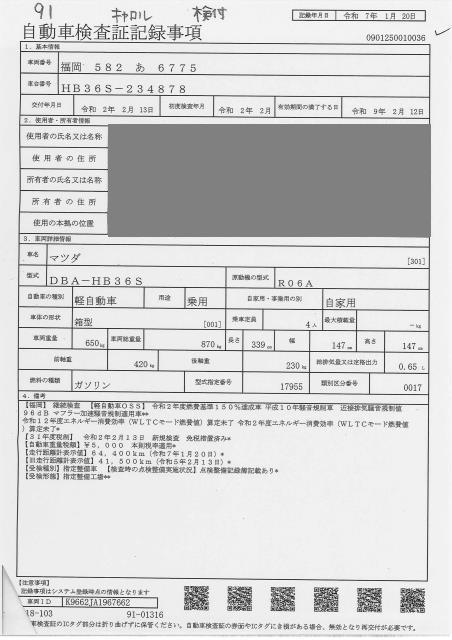 91 キャロル 検付
記録年月日 令和 7年 1月 20日
自動車検査証記録事項
0901250010036
1．基本情報
車両番号 福岡 582 あ 6775
車台番号 HB36S－234878
交付年月日 令和 2年 2月 13日 初度検査年月 令和 2年 2月 有効期間の満了する日 令和 9年 2月 12日
2．使用者・所有者情報
使用者の氏名又は名称
使用者の住所
所有者の氏名又は名称
所有者の住所
使用の本拠の位置
3．車両詳細情報
車名 マツダ [301]
型式 DBA－HB36S 原動機の型式 R06A
自動車の種別 軽自動車 用途 乗用 自家用・事業用の別 自家用
車体の形状 箱型 [001] 乗車定員 4人 最大積載量 －kg
車両重量 650kg 車両総重量 870kg 長さ 339cm 幅 147cm 高さ 147cm
前軸重 420kg 後軸重 230kg 総排気量又は定格出力 0.65L
燃料の種類 ガソリン 型式指定番号 17955 類別区分番号 0017
4．備考
【福岡】 継続検査 【軽自動車OSS】 令和2年度燃費基準150％達成車 平成10年騒音規制車 近接排気騒音規制値
96dB マフラー加速騒音規制適用車**
令和12年度エネルギー消費効率（WLTCモード燃費値）算定未了 令和2年度エネルギー消費効率（WLTCモード燃費値
）算定未了*
【31年度税制】 令和2年2月13日 新規検査 免税措置済み*
【自動車重量税額】￥5，000 本則税率適用*
【走行距離計表示値】64，400km（令和7年1月20日）*
【旧走行距離計表示値】41，500km（令和5年2月13日）*
【受検種別】指定整備車 【検査時の点検整備実施状況】点検整備記録簿記載あり*
【受検形態】指定整備工場**
【注意事項】
記録事項はシステム登録時点の情報となります
車両ID K9662JA1967662
18-103 91-01316
車検査証のICタグ部分は折り曲げずに保管ください。自動車検査証の券面やICタグに余積がある場合、無効となり再交付が必要です。